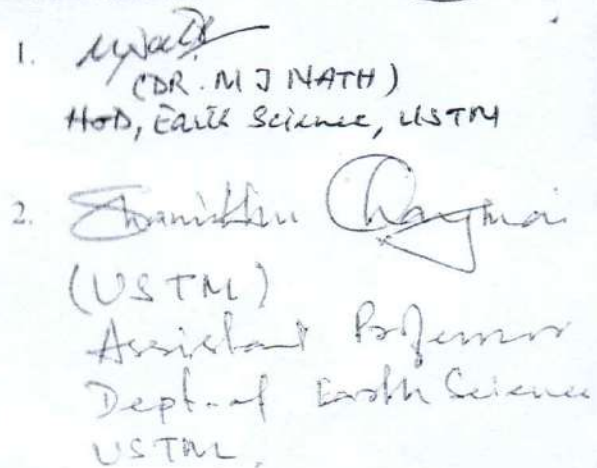 1.
(DR. M J NATH)
HOD, Earth Science, USTM
2.
(USTM)
Assistant Professor
Dept. of Earth Science
USTM.